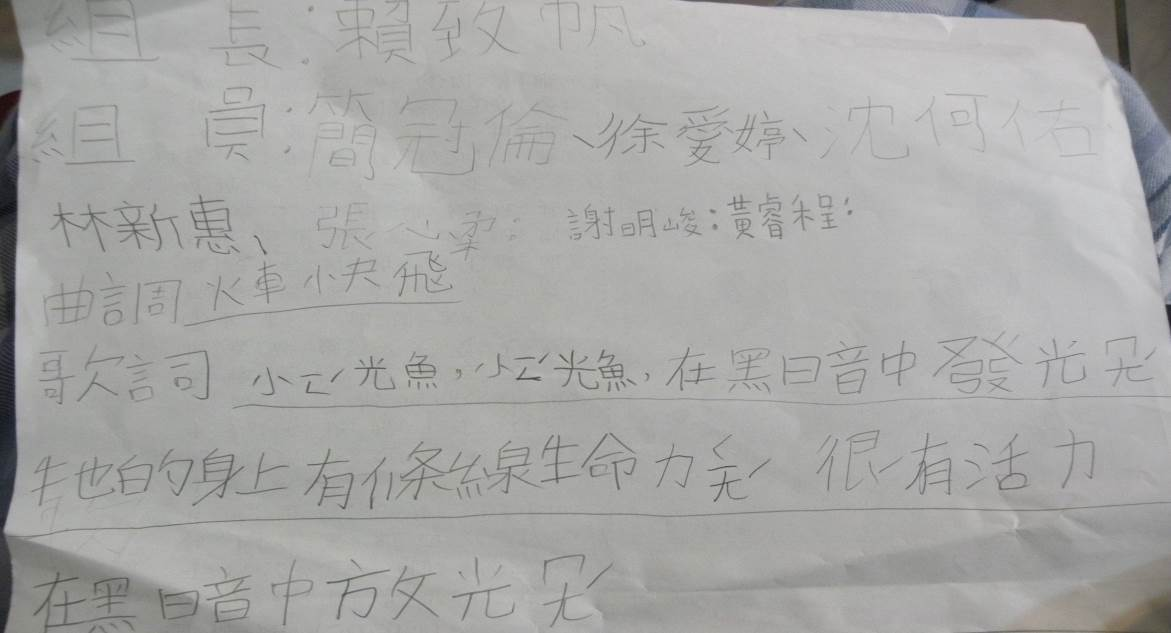 組 長:賴致帆
組 員:簡冠倫、徐愛婷、沈何佑
林新惠、張心柔: 謝明峻:黃睿程:
曲調 火車小快飛
歌詞 小ㄧㄥˊ光魚,小ㄧㄥˊ光魚,在黑暗中發光ㄇㄤˊ
牠的身上有條線生命力ㄑㄧㄤˊ 很有活力
在黑暗中放光ㄇㄤˊ